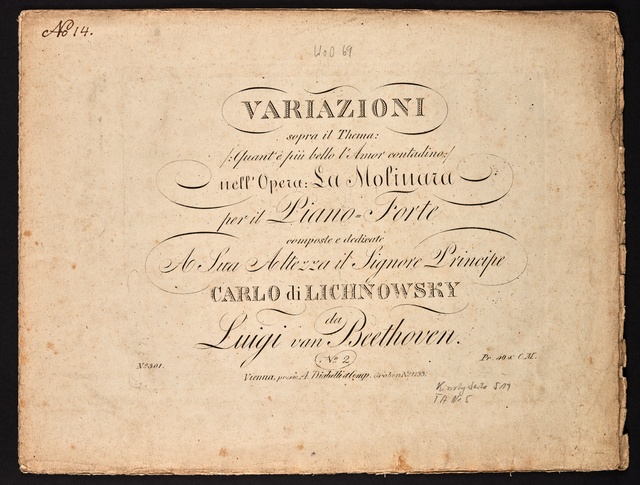 No 14.
WoO 69
VARIAZIONI
sopra il Thema:
/:Quant'è più bello l'Amor contadino:/
nell'Opera: La Molinara
per il Piano=Forte
composte e dedicate
A Sua Altezza il Signore Principe
CARLO di LICHNOWSKY
da
Luigi van Beethoven.
No 2
No 301. Pr. 40 x C.M.
Vienna, presso A. Diabelli et Comp. Graben No 1133.